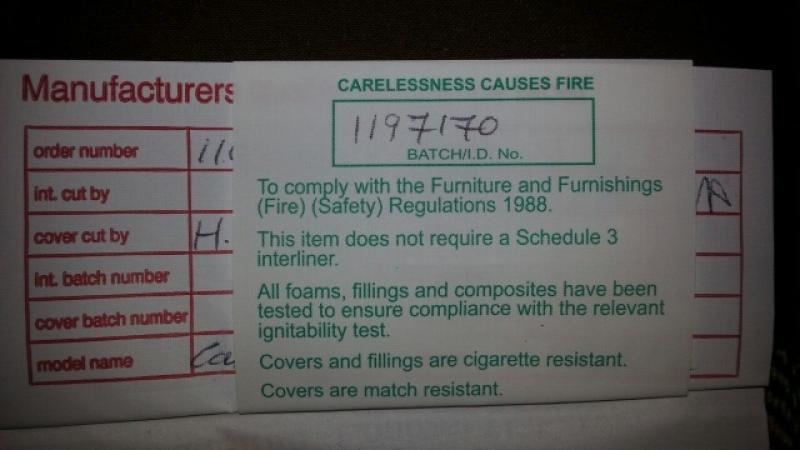 Manufacturers
order number
int. cut by
cover cut by H.
int. batch number
cover batch number
model name
CARELESSNESS CAUSES FIRE
1197170
BATCH/I.D. No.
To comply with the Furniture and Furnishings
(Fire) (Safety) Regulations 1988.
This item does not require a Schedule 3
interliner.
All foams, fillings and composites have been
tested to ensure compliance with the relevant
ignitability test.
Covers and fillings are cigarette resistant.
Covers are match resistant.